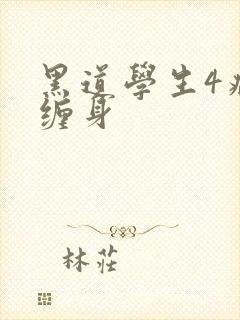 黑道學生4病
缠身
林莊